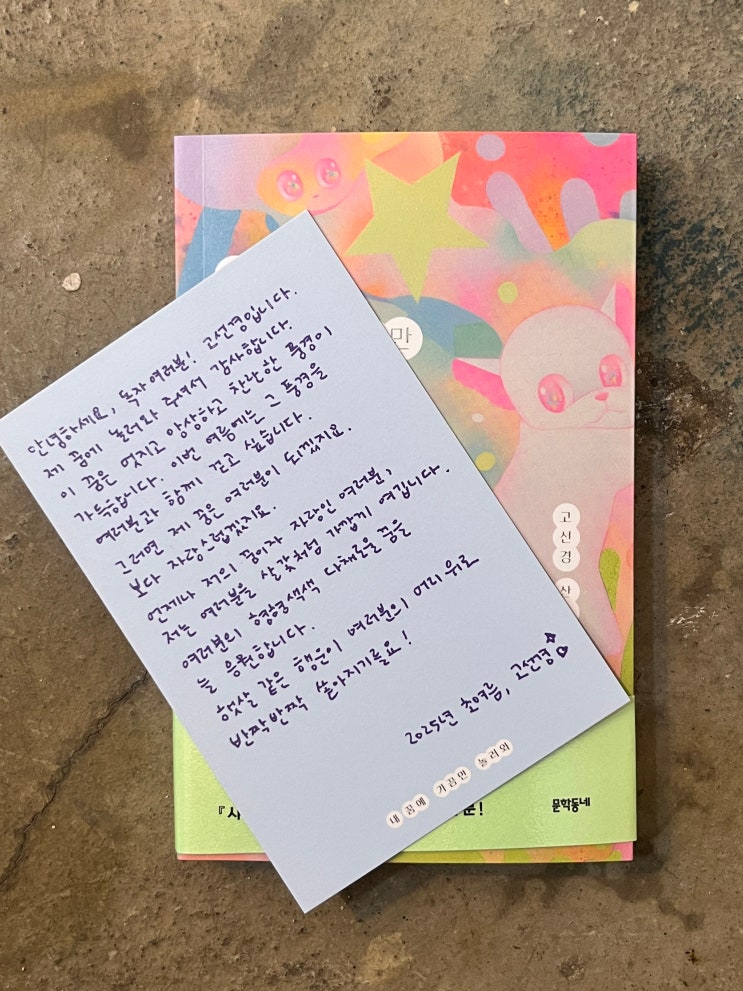 만
고선경 산
안녕하세요, 독자 여러분! 고선경입니다.
제 꿈에 놀러와 주셔서 감사합니다.
이 꿈은 멋지고 앙상하고 찬란한 풍경이
가득합니다. 이번 여름에는 그 풍경을
여러분과 함께 걷고 싶습니다.
그러면 제 꿈은 여러분이 되겠지요.
보다 자랑스럽겠지요.
언제나 저의 꿈이자 자랑인 여러분,
저는 여러분을 살갗처럼 가깝게 여깁니다.
여러분의 형형색색 다채로운 꿈을
늘 응원합니다.
햇살 같은 행운이 여러분의 머리 위로
반짝반짝 쏟아지기를요!
2025년 초여름, 고선경
내 꿈에 가끔만 놀러와
문학동네